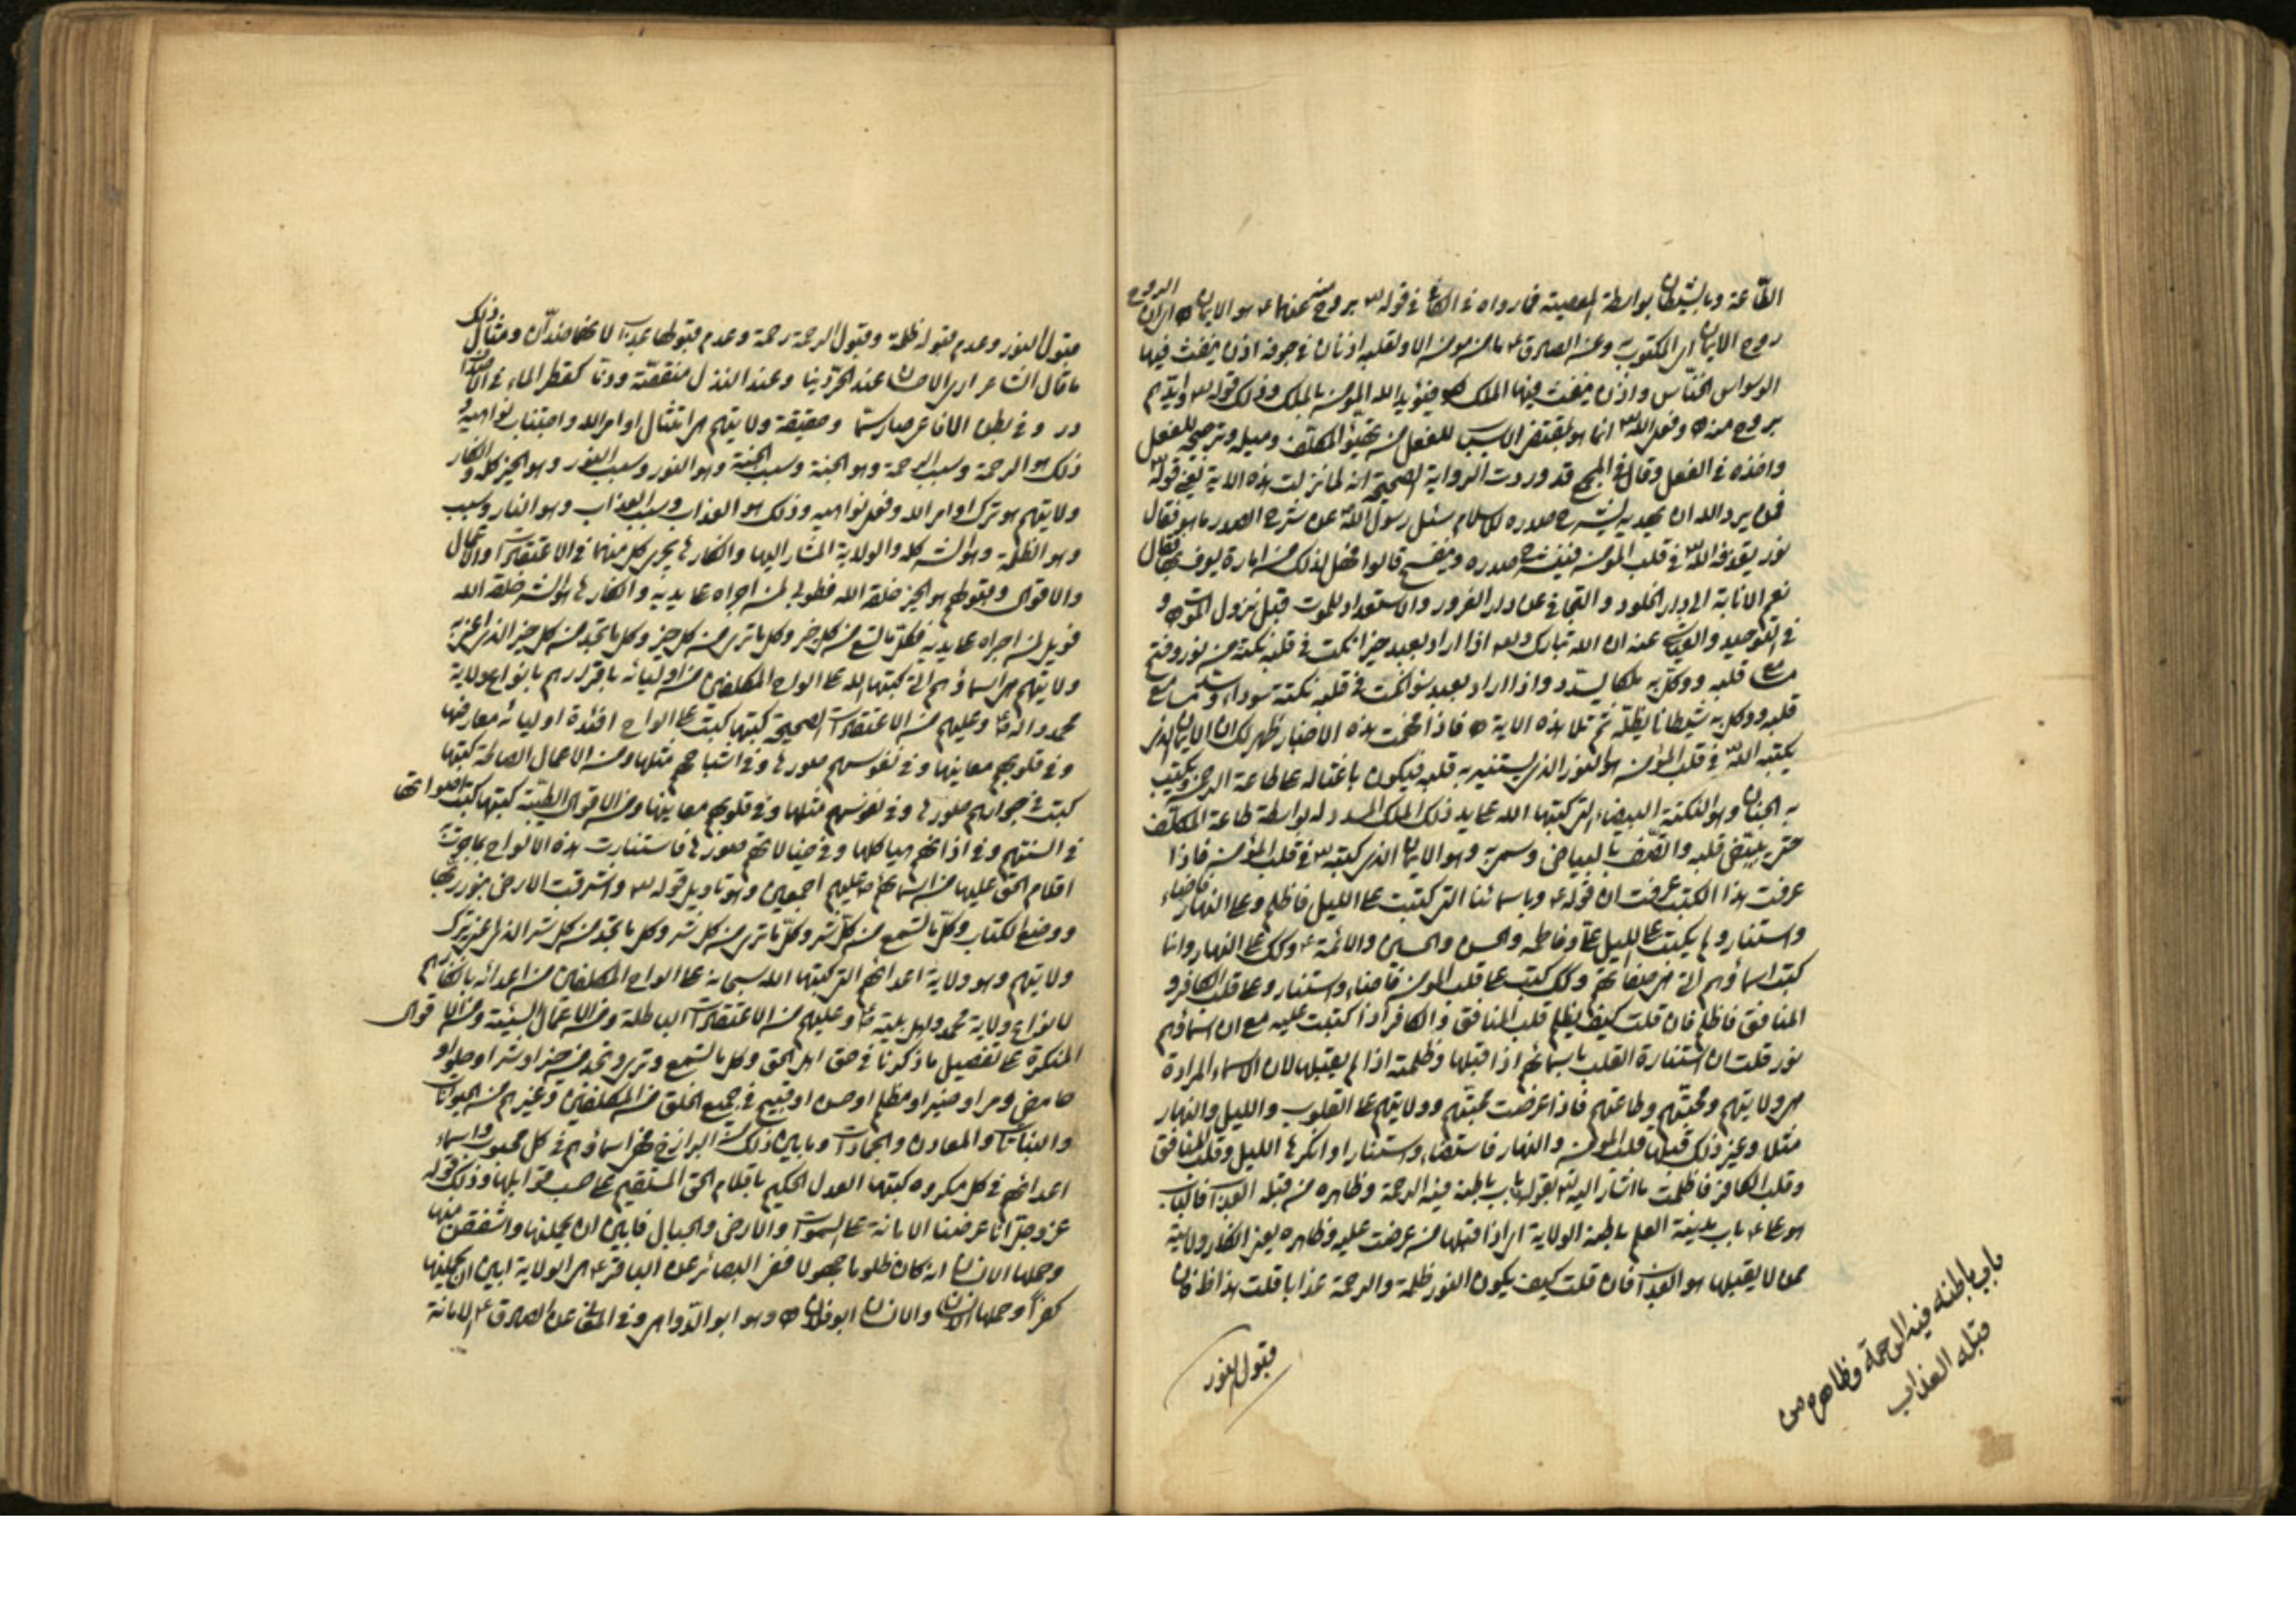 الطاعة وبالشيطان بواسطة المعصية فما رواه في الكافي في قوله تع بروح منه عنهما ع هو الايمان
روح الايمان المكتوب وعنه الصادق ع ما من مؤمن الا ولقلبه اذنان في جوفه اذن ينفث فيها
الوسواس الخناس واذن ينفث فيها الملك فيؤيد الله المؤمن بالملك وذلك قوله تع وايدهم
بروح منه وفعل الله انما هو بمقتضى الاسباب للفعل من تهيؤ المكلف وميله وترجيحه للفعل
واخذه في الفعل وقال في المجمع قد وردت الرواية الصحيحة انه لما نزلت هذه الاية يعني قوله
فمن يرد الله ان يهديه يشرح صدره للاسلام سئل رسول الله عن شرح الصدر ما هو فقال
نور يقذفه الله في قلب المؤمن فينشرح صدره وينفسح قالوا فهل لذلك من امارة يعرف بها فقال
نعم الانابة الى دار الخلود والتجافي عن دار الغرور والاستعداد للموت قبل نزول الموت و
في التوحيد والعياشي عنه ان الله تبارك وتع اذا اراد بعبد خيرا نكت في قلبه نكتة من نور وفتح
مسامع قلبه ووكل به ملكا يسدده واذا اراد بعبد سوء نكت في قلبه نكتة سوداء وسد مسامع
قلبه ووكل به شيطانا يظله ثم تلا هذه الاية فاذا فهمت هذه الاخبار ظهر لك ان الايمان الذي
يكتبه الله في قلب المؤمن هو النور الذي يستنير به قلبه فيكون باعثا له على طاعة الرحمن ويكتسب
به الجنان وهو النكتة البيضاء التي كتبها الله على يد ذلك الملك المسدد له بواسطة طاعة المكلف
حتى يبيض قلبه واتصف بالبياض وسمي به وهو الايمان الذي كتبه تع في قلب المؤمن فاذا
عرفت هذا الكتب عرفت ان قوله ع وباسمائنا التي كتبت على الليل فاظلم وعلى النهار فاضاء
واستنار وما يكتب على الليل علي وفاطمة والحسن والحسين والائمة ع وكك على النهار وانما
كتبت اسماؤهم التي هي صفاتهم وكك كتبت على قلب المؤمن فاضاء واستنار وعلى قلب الكافر و
المنافق فاظلم فان قلت كيف يظلم قلب المنافق والكافر اذا كتبت عليه مع ان اسماؤهم
نور قلت ان استنارة القلب باسمائهم اذا قبلها وظلمته اذا لم يقبلها لان الاسماء المرادة
هي ولايتهم ومحبتهم وطاعتهم فاذا عرضت محبتهم وولايتهم على القلوب والليل والنهار
مثلا وغير ذلك قبلها قلب المؤمن والنهار فاستضاء واستنار او انكرها الليل وقلب المنافق
وقلب الكافر فاظلمت ما اشار اليه تع بقوله باب باطنه فيه الرحمة وظاهره من قبله العذاب فالباب
هو علي ع باب مدينة العلم باطنه الولاية اي اذا قبلها من عرضت عليه وظاهره يعني انكار ولايته
ممن لا يقبلها هو العذاب فان قلت كيف يكون النور ظلمة والرحمة عذابا قلت هذا ظ فان
باب باطنه فيه الرحمة وظاهره من
قبله العذاب
قبول النور
قبول النور وعدم قبوله ظلمة وقبول الرحمة رحمة وعدم قبولها عذاب لانهما ضدان ومثال ذلك
ما قال الشاعر ارى الاحسان عند الحر دينا وعند النذل منقصة وذما كقطر الماء في الاصداف
در وفي بطن الافاعي صار سما وحقيقة ولايتهم هي امتثال اوامر الله واجتناب نواهيه و
ذلك هو الرحمة وسبب الرحمة وهو الجنة وسبب الجنة وهو النور وسبب النور وهو الخير كله وانكار
ولايتهم هو ترك اوامر الله وفعل نواهيه وذلك هو العذاب وسبب العذاب وهو النار وسبب
وهو الظلمة وهو الشر كله والولاية المشار اليها وانكارها يجري كل منهما في الاعتقادات والاعمال
والاقوال وقبولهم هو الخير خلقه الله فطوبى لمن اجراه على يديه وانكارها هو الشر خلقه الله
فويل لمن اجراه على يديه فكلما تسمع من كل خير وكل ما ترى من كل خير وكل ما تجد من كل خير الذي اعني به
ولايتهم هي اسماؤهم التي كتبها الله على الواح المكلفين من اوليائه باقرارهم بانواع ولاية
محمد واله ص وعليهم من الاعتقادات الصحيحة كتبها كتبت على الواح افئدة اوليائه معارفها
وفي قلوبهم معانيها وفي نفوسهم صورها وفي اشباحهم مثلها ومن الاعمال الصالحة كتبها
كتبت في جوارحهم صورها وفي نفوسهم مثلها وفي قلوبهم معانيها ومن الاقوال الطيبة كتبها كتبت اصواتها
في السنتهم وفي اذانهم هياكلها وفي خيالاتهم صورها فاستنارت هذه الالواح بما جرت به
اقلام الحق عليها من اسمائهم ص عليهم اجمعين وهو تاويل قوله تع واشرقت الارض بنور ربها
ووضع الكتاب وكل ما تسمع من كل شر وكل ما ترى من كل شر وكل ما تجد من كل شر الذي اعني ترك
ولايتهم وهو ولاية اعدائهم التي كتبها الله سبحانه على الواح المكلفين من اعدائه بانكارهم
لانواع ولاية محمد واهل بيته ص وعليهم من الاعتقادات الباطلة ومن الاعمال السيئة ومن الاقوال
المنكرة على تفصيل ما ذكرنا في حق اهل الحق وكل ما تسمع وترى وتجد من خير او شر او حلو او
حامض ومر او مضيء او مظلم او حسن او قبيح في جميع الخلق من المكلفين وغيرهم من الحيوانات
والنباتات والمعادن والجمادات وما بين ذلك من البرازخ فهي اسماؤهم في كل محبوب واسماء
اعدائهم في كل مكروه كتبها العدل الحكيم باقلام الحق المستقيم على حسب قوابلها وذلك قوله
عز وجل انا عرضنا الامانة على السموات والارض والجبال فابين ان يحملنها واشفقن منها
وحملها الانسان انه كان ظلوما جهولا ففي البصائر عن الباقر ع هي الولاية ابين ان يحملنها
كفرا وحملها الانسان والانسان ابو فلان وهو ابو الدواهي وفي المعاني عن الصادق ع الامانة